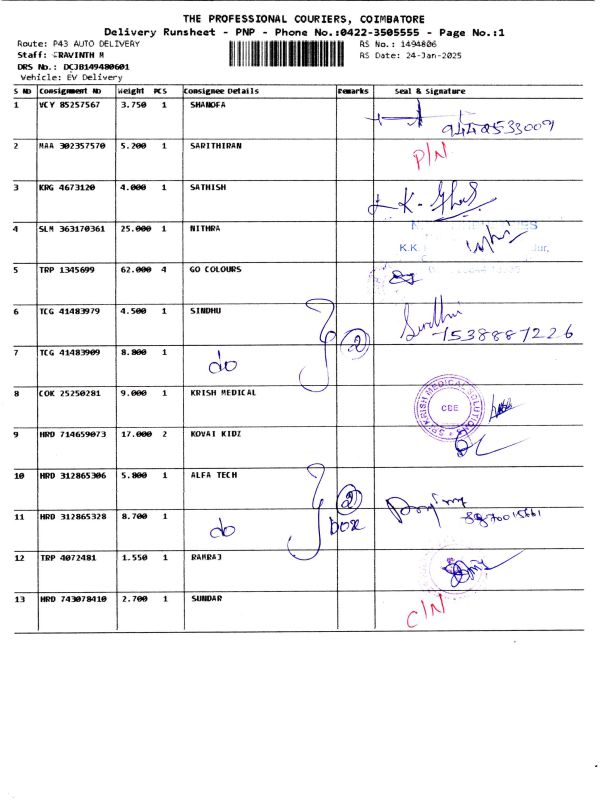 THE PROFESSIONAL COURIERS, COIMBATORE
Delivery Runsheet - PNP - Phone No.:0422-3505555 - Page No.:1
Route: P43 AUTO DELIVERY RS No.: 1494806
Staff: FRAVINTH M RS Date: 24-Jan-2025
DRS No.: DCJB149480601
Vehicle: EV Delivery
S NO Consignment NO Weight PCS Consignee Details Remarks Seal & Signature
1 VCY 85257567 3.750 1 SHANOFA
2 MAA 302357570 5.200 1 SARITHIRAN P/N
3 KRG 4673120 4.000 1 SATHISH
4 SLM 363170361 25.000 1 NITHRA K.K.
5 TRP 1345699 62.000 4 GO COLOURS
6 TCG 41483979 4.500 1 SINDHU Sindhu
7538887226
7 TCG 41483909 8.800 1 do 2
8 COK 25250281 9.000 1 KRISH MEDICAL SRI KRISH MEDICAL SOLUTIONS CBE
9 HRD 714659073 17.000 2 KOVAI KIDZ
10 HRD 312865306 5.800 1 ALFA TECH 2
11 HRD 312865328 8.700 1 do box
12 TRP 4072481 1.550 1 RAMRAJ
13 HRD 743078410 2.700 1 SUNDAR C/N